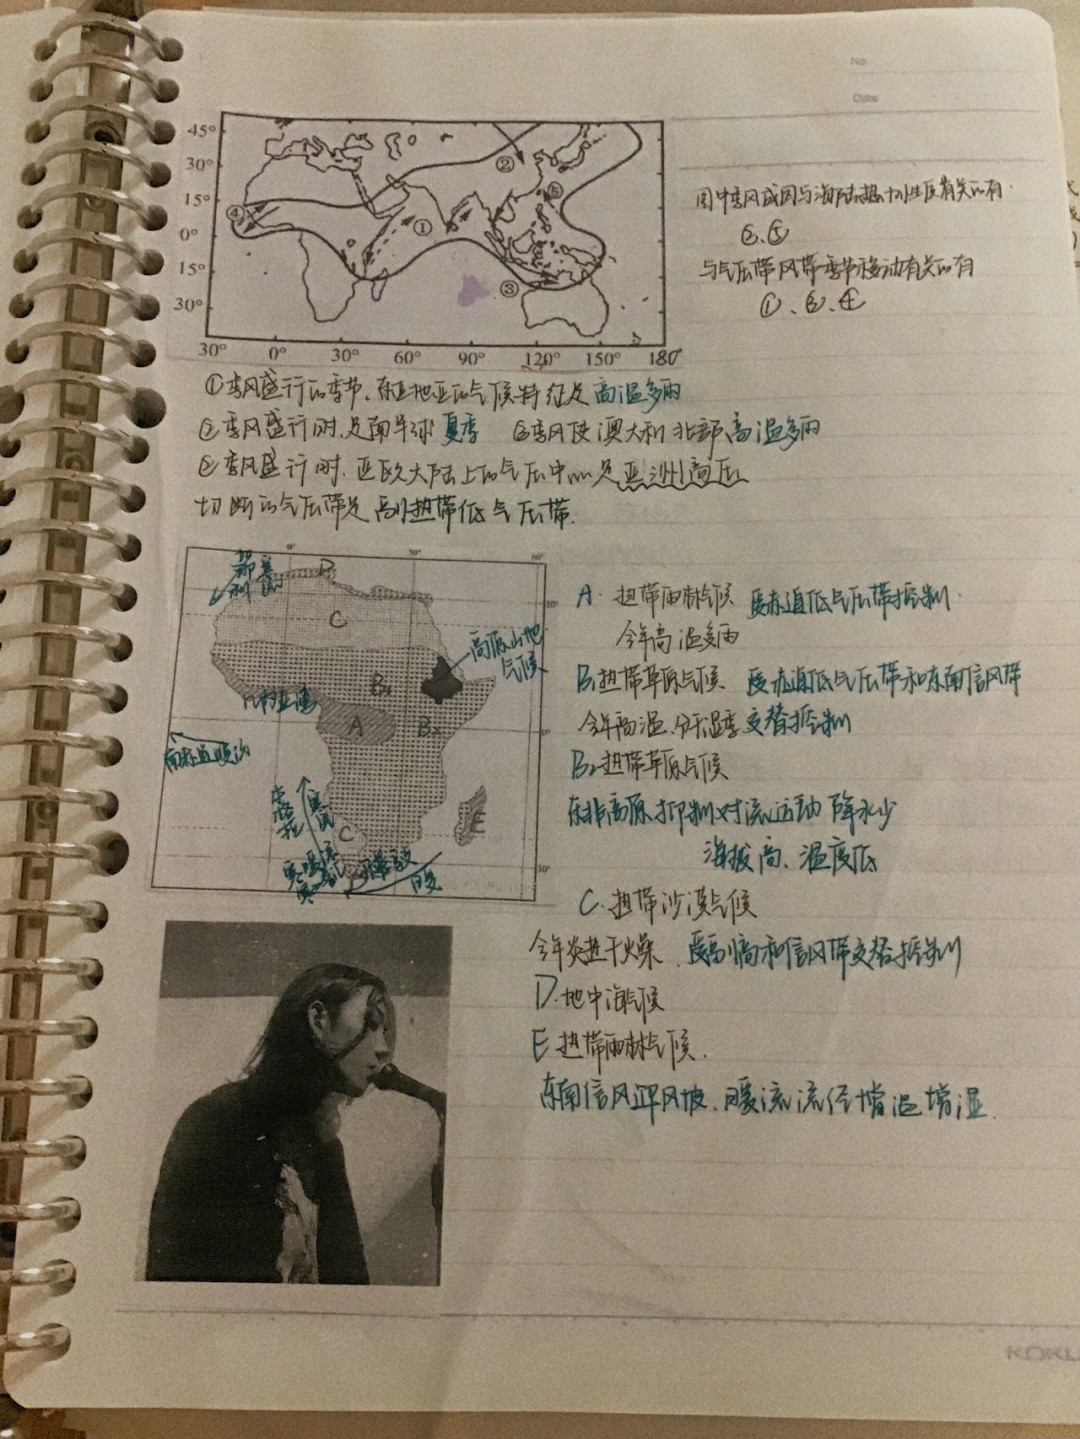 No.
Date
45°
30°
15°
0°
15°
30°
30° 0° 30° 60° 90° 120° 150° 180°
① ② ③ ④ ⑤
图中季风成因与海陆热力性质有关的有
②、⑤
与气压带风带季节移动有关的有
①、③、④
①季风盛行的季节,东亚地区的气候特征是高温多雨
②季风盛行时,是南半球夏季 ③季风使澳大利亚北部高温多雨
②季风盛行时,亚欧大陆上的气压中心是亚洲高压
切断的气压带是副热带低气压带.
0° 30° 60°
30°
0°
30°
D
C
高原山地
气候
B₁
几内亚湾
A
B₂
南赤道暖流
C
E
D
A. 热带雨林气候 受赤道低气压带控制.
全年高温多雨
B₁热带草原气候 受赤道低气压带和东南信风带
全年高温,分干湿季 交替控制
B₂热带草原气候
东非高原抑制对流运动 降水少
海拔高、温度低
C. 热带沙漠气候
全年炎热干燥、受副高和信风带交替控制
D. 地中海气候
E 热带雨林气候.
东南信风迎风坡、暖流流经增温增湿.